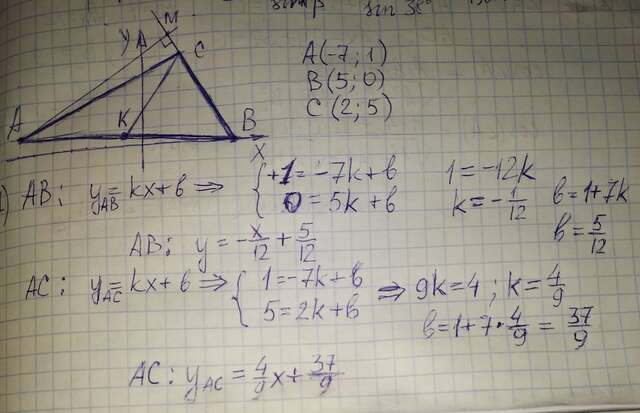 M
y
C
A
K
B
x
A(-7; 1)
B(5; 0)
C(2; 5)
AB: y_AB = kx+b ⇒ { +1 = -7k+b
0 = 5k+b
1 = -12k
k = -1/12
b = 1+7k
b = 5/12
AB: y = -x/12 + 5/12
AC: y_AC = kx+b ⇒ { 1 = -7k+b
5 = 2k+b
⇒ 9k = 4; k = 4/9
b = 1+7·4/9 = 37/9
AC: y_AC = 4/9 x + 37/9